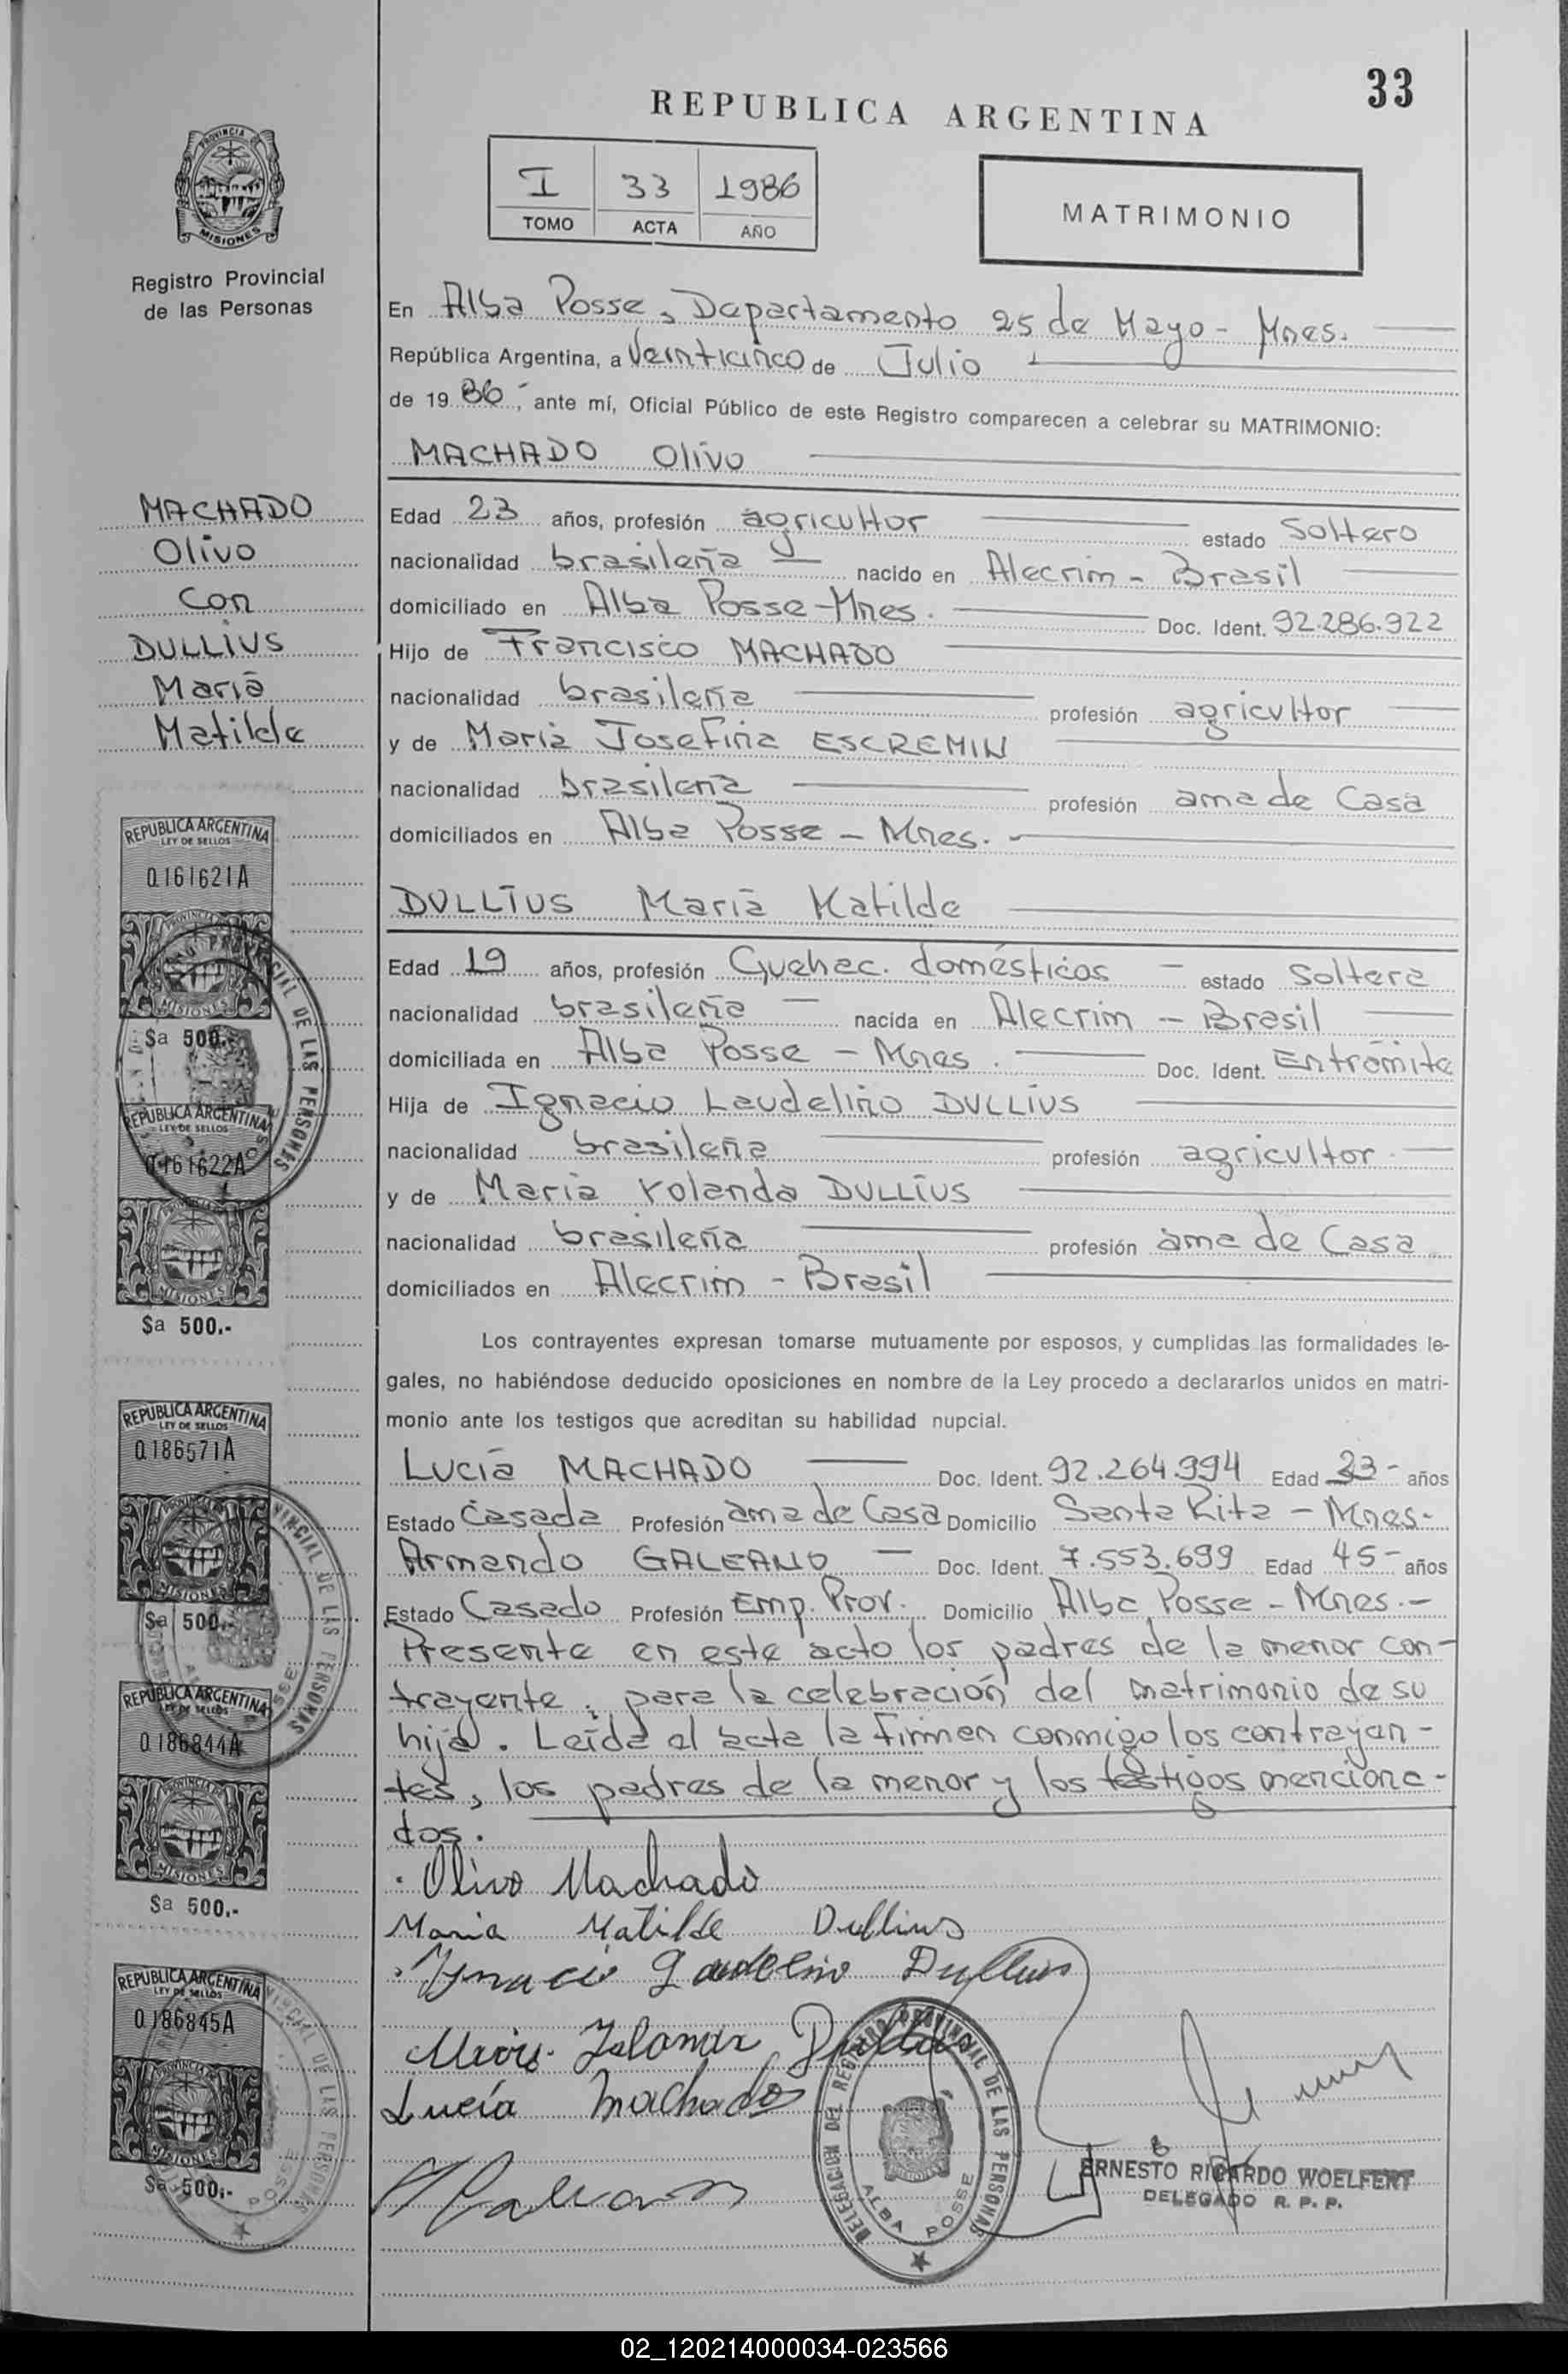 33
REPUBLICA ARGENTINA
I 33 1986
TOMO ACTA AÑO
MATRIMONIO
PROVINCIA DE
MISIONES
Registro Provincial
de las Personas
MACHADO
Olivo
Con
DULLIUS
María
Matilde
En Alba Posse, Departamento 25 de Mayo - Mnes.
República Argentina, a Veinticinco de Julio
de 19 86, ante mí, Oficial Público de este Registro comparecen a celebrar su MATRIMONIO:
MACHADO Olivo
Edad 23 años, profesión agricultor estado Soltero
nacionalidad brasileña nacido en Alecrim - Brasil
domiciliado en Alba Posse - Mnes. Doc. Ident. 92.286.922
Hijo de Francisco MACHADO
nacionalidad brasileña profesión agricultor
y de María Josefina ESCREMIN
nacionalidad brasileña profesión ama de Casa
domiciliados en Alba Posse - Mnes.
DULLIUS María Matilde
Edad 19 años, profesión Quehac. domésticos estado Soltera
nacionalidad brasileña nacida en Alecrim - Brasil
domiciliada en Alba Posse - Mnes. Doc. Ident. Entrámite
Hija de Ignacio Laudelino DULLIUS
nacionalidad brasileña profesión agricultor
y de María Yolanda DULLIUS
nacionalidad brasileña profesión ama de Casa
domiciliados en Alecrim - Brasil
Los contrayentes expresan tomarse mutuamente por esposos, y cumplidas las formalidades le-
gales, no habiéndose deducido oposiciones en nombre de la Ley procedo a declararlos unidos en matri-
monio ante los testigos que acreditan su habilidad nupcial.
Lucía MACHADO Doc. Ident. 92.264.994 Edad 23 - años
Estado Casada Profesión ama de Casa Domicilio Santa Rita - Mnes.
Armando GALEANO - Doc. Ident. 7.553.699 Edad 45 - años
Estado Casado Profesión Emp. Prov. Domicilio Alba Posse - Mnes.-
Presente en este acto los padres de la menor con-
trayente; para la celebración del matrimonio de su
hija. Leída el acta la firmen conmigo los contrayan-
tes, los padres de la menor y los testigos menciona-
dos.
Olivo Machado
Maria Matilde Dullius
Ignacio Laudelino Dullius
Dullius
Lucía Machado
ERNESTO RICARDO WOELFERT
DELEGADO R. P. P.
DELEGACION DEL REGISTRO PROVINCIAL DE LAS PERSONAS
ALBA POSSE
REPUBLICA ARGENTINA
LEY DE SELLOS
0.161621A
PROVINCIA
MISIONES
$a 500.-
REPUBLICA ARGENTINA
LEY DE SELLOS
0.161622A
MISIONES
$a 500.-
REPUBLICA ARGENTINA
LEY DE SELLOS
0.186571A
PROVINCIA
MISIONES
$a 500.-
REPUBLICA ARGENTINA
LEY DE SELLOS
0.186844A
PROVINCIA
MISIONES
$a 500.-
REPUBLICA ARGENTINA
LEY DE SELLOS
0.186845A
PROVINCIA
MISIONES
$a 500.-
02_120214000034-023566